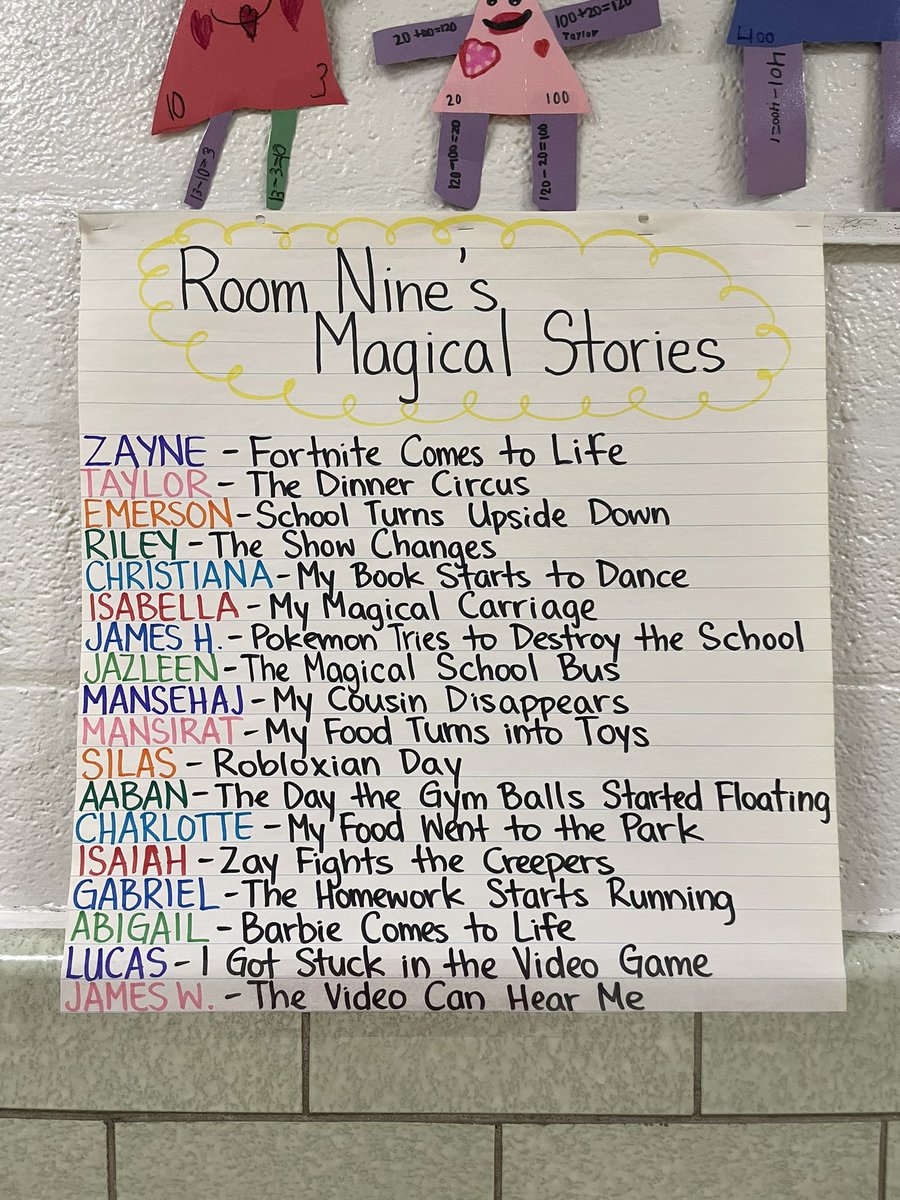 10
3
13-10=3
13-3=10
20+100=120
100+20=120
Taylor
20
100
120-100=20
120-20=100
400
401-400=1
Room Nine's
Magical Stories
ZAYNE - Fortnite Comes to Life
TAYLOR - The Dinner Circus
EMERSON - School Turns Upside Down
RILEY - The Show Changes
CHRISTIANA - My Book Starts to Dance
ISABELLA - My Magical Carriage
JAMES H. - Pokemon Tries to Destroy the School
JAZLEEN - The Magical School Bus
MANSEHAJ - My Cousin Disappears
MANSIRAT - My Food Turns into Toys
SILAS - Robloxian Day
AABAN - The Day the Gym Balls Started Floating
CHARLOTTE - My Food Went to the Park
ISAIAH - Zay Fights the Creepers
GABRIEL - The Homework Starts Running
ABIGAIL - Barbie Comes to Life
LUCAS - I Got Stuck in the Video Game
JAMES W. - The Video Can Hear Me